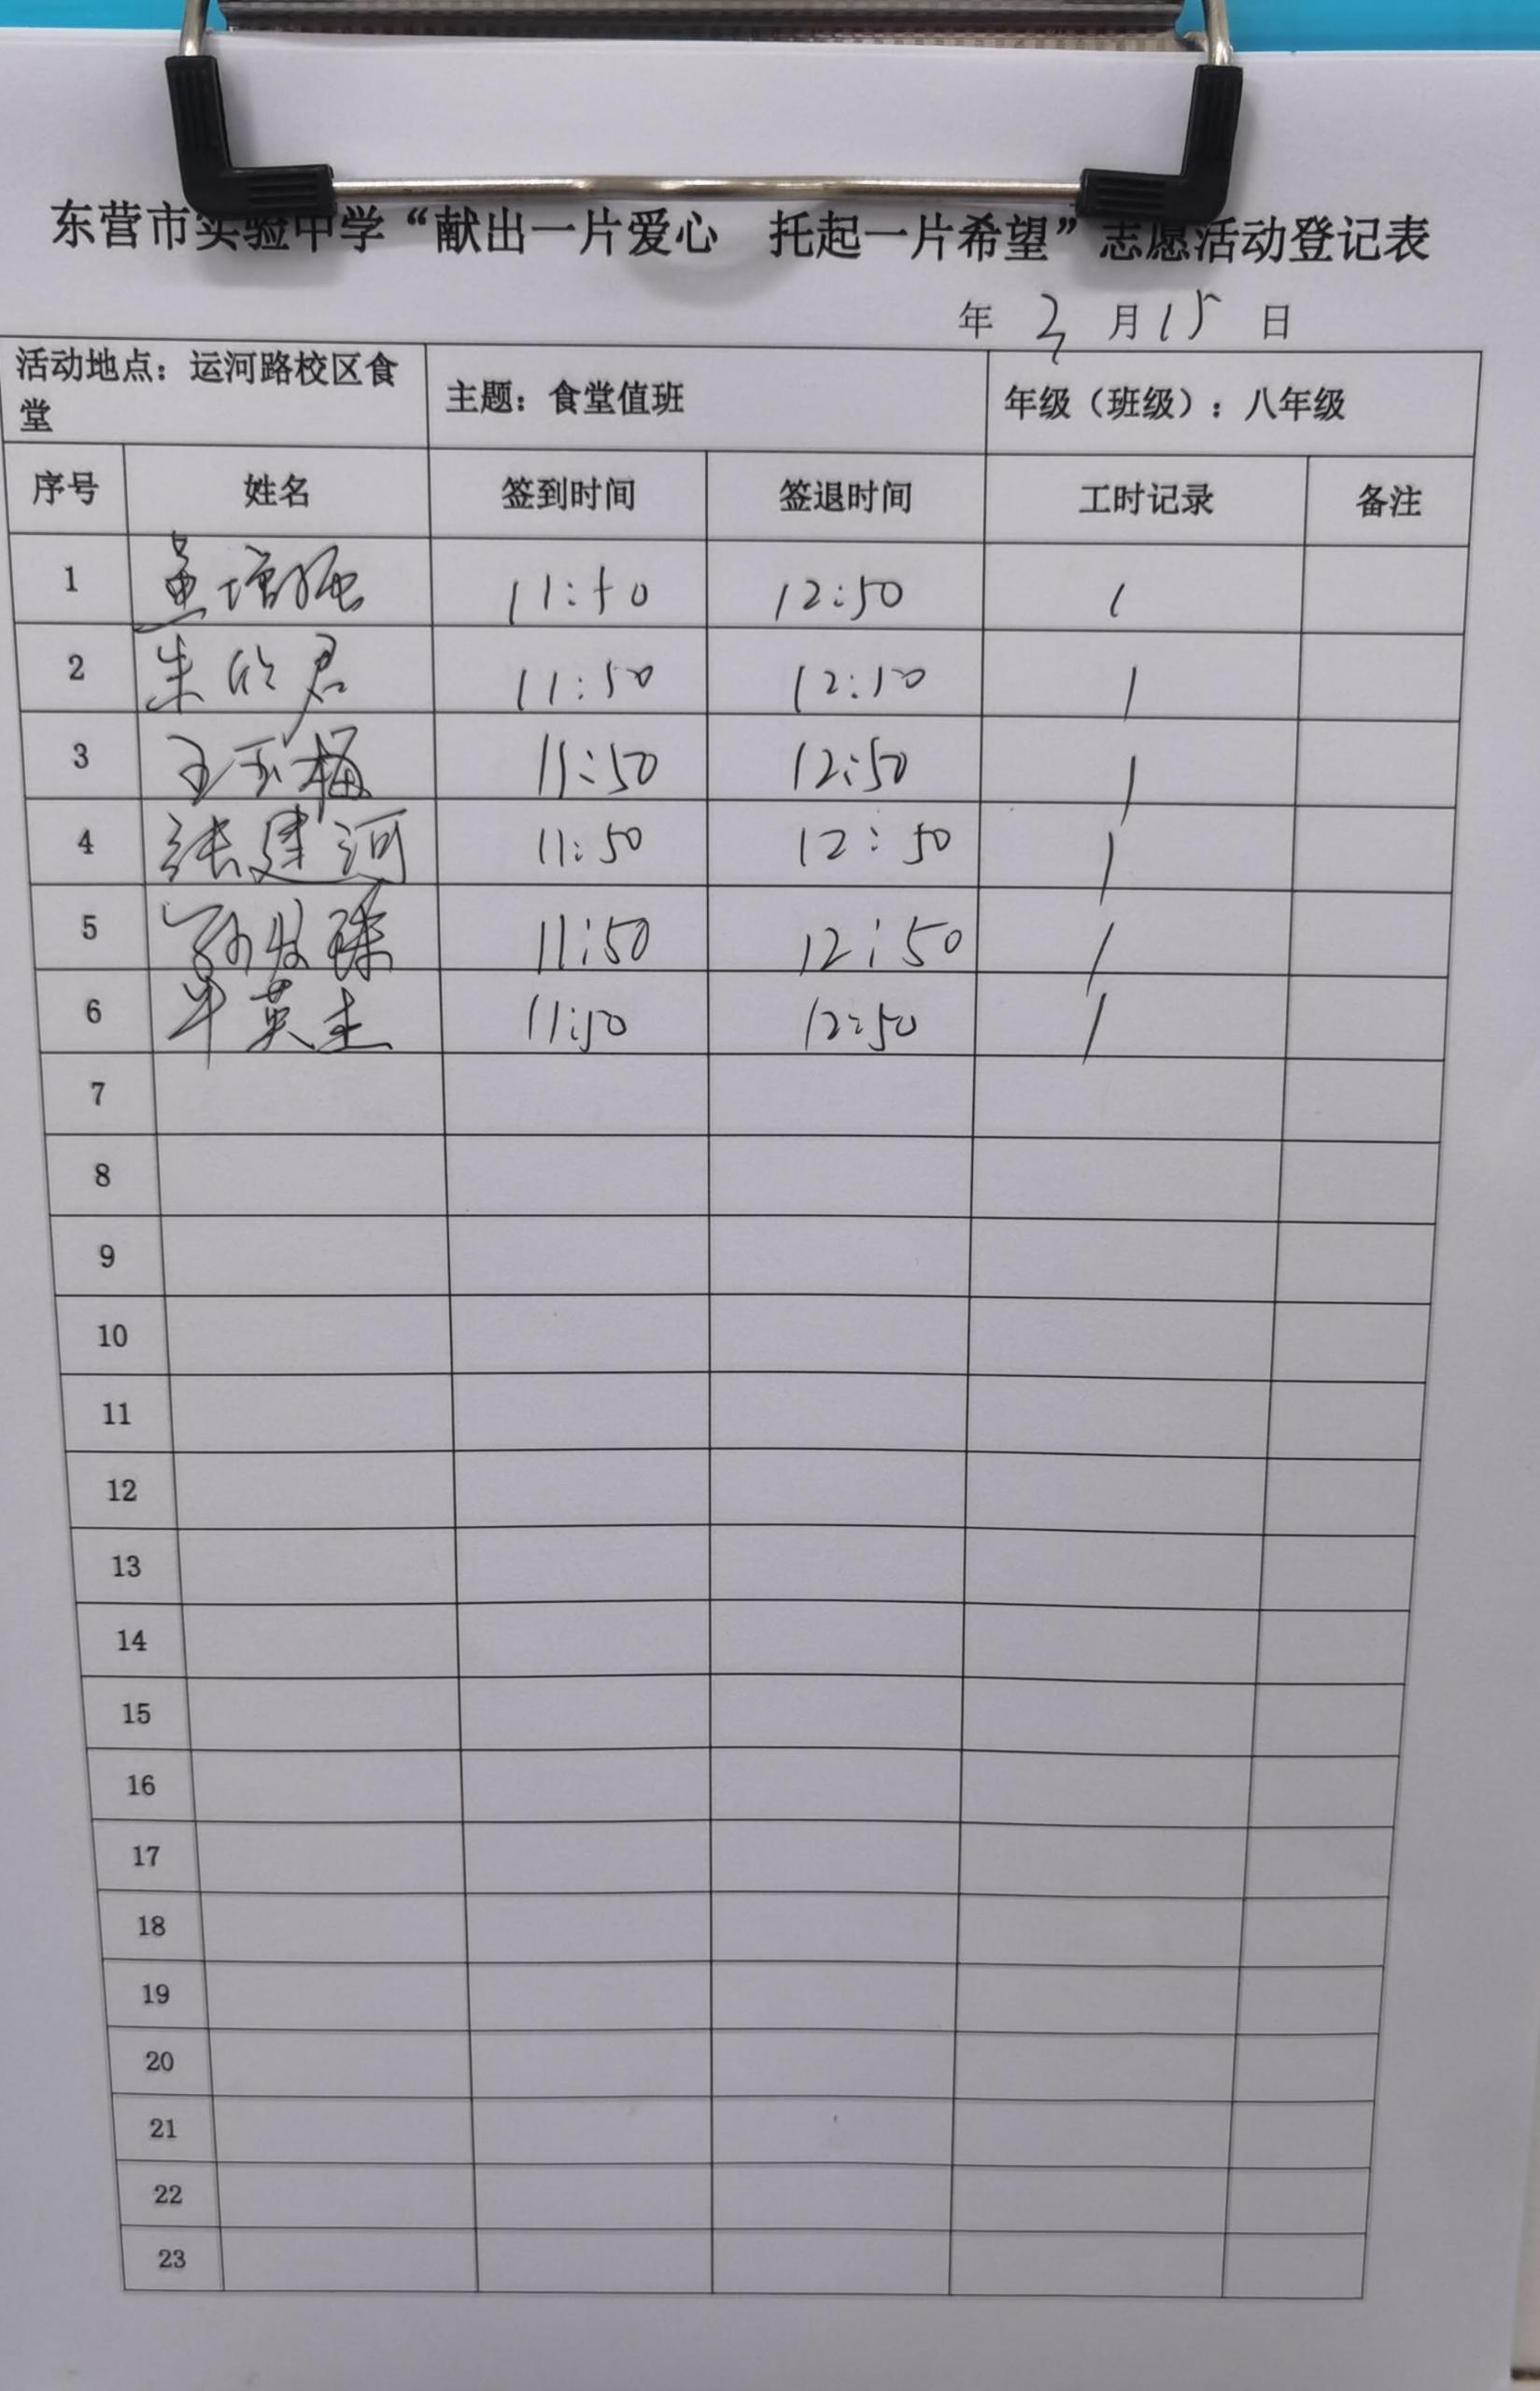 东营市实验中学“献出一片爱心 托起一片希望”志愿活动登记表
年 3 月 15 日
活动地点：运河路校区食堂 主题：食堂值班 年级（班级）：八年级
序号 姓名 签到时间 签退时间 工时记录 备注
1 11:50 12:50 1
2 朱欣君 11:50 12:50 1
3 王玉梅 11:50 12:50 1
4 张建河 11:50 12:50 1
5 11:50 12:50 1
6 牛英杰 11:50 12:50 1
7
8
9
10
11
12
13
14
15
16
17
18
19
20
21
22
23